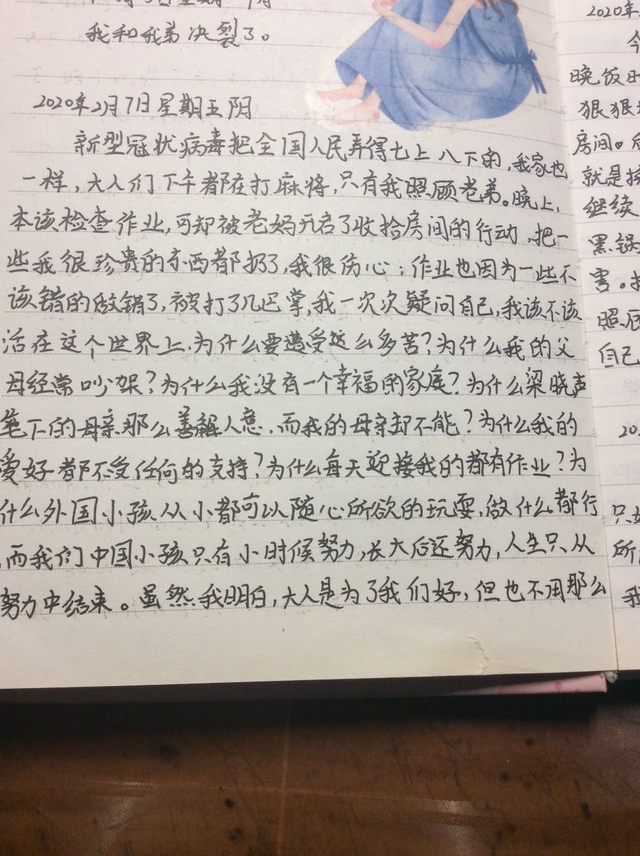 我和我弟决裂了。
2020年2月7日星期五阴
新型冠状病毒把全国人民弄得七上八下的,我家也
一样,大人们下午都在打麻将,只有我照顾老弟。晚上,
本该检查作业,可却被老妈开启了收拾房间的行动,把一
些我很珍贵的东西都扔了,我很伤心;作业也因为一些不
该错的做错了,被打了几巴掌,我一次次疑问自己,我该不该
活在这个世界上,为什么要遭受这么多苦?为什么我的父
母经常吵架?为什么我没有一个幸福的家庭?为什么梁晓声
笔下的母亲那么善解人意,而我的母亲却不能?为什么我的
爱好都不受任何的支持?为什么每天迎接我的都有作业?为
什么外国小孩从小都可以随心所欲的玩耍,做什么都行
而我们中国小孩只有小时候努力,长大后还努力,人生只从
努力中结束。虽然我明白,大人是为了我们好,但也不用那么
2020年
晚饭时
狠狠
房间。
就是
继续
黑锅
害。
照顾
自己
20
只
所
我